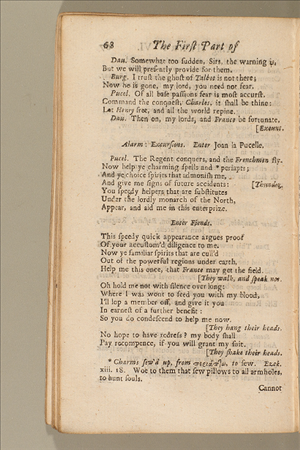 68 The First Part of
Dau. Somewhat too sudden, Sirs, the warning is,
But we will presently provide for them.
Burg. I trust the ghost of Talbot is not there;
Now he is gone, my lord, you need not fear.
Pucel. Of all base passions fear is most accurst.
Command the conquest, Charles, it shall be thine:
Let Henry fret, and all the world repine.
Dau. Then on, my lords, and France be fortunate.
[Exeunt.
Alarm: Excursions. Enter Joan la Pucelle.
Pucel. The Regent conquers, and the Frenchmen fly.
Now help ye charming spells and * periapts;
And ye choice spirits that admonish me,
And give me signs of future accidents; [Thunder,
You speedy helpers that are substitutes
Under the lordly monarch of the North,
Appear, and aid me in this enterprize.
Enter Fiends.
This speedy quick appearance argues proof
Of your accustom'd diligence to me.
Now ye familiar spirits that are cull'd
Out of the powerful regions under earth,
Help me this once, that France may get the field.
[They walk, and speak not
Oh hold me not with silence over long:
Where I was wont to feed you with my blood,
I'll lop a member off, and give it you
In earnest of a further benefit:
So you do condescend to help me now.
[They hang their heads.
No hope to have redress? my body shall
Pay recompence, if you will grant my suit.
[They shake their heads.
* Charms sew'd up, from to sew. Ezek.
xiii. 18. Wo to them that sew pillows to all armholes,
to hunt souls.
Cannot